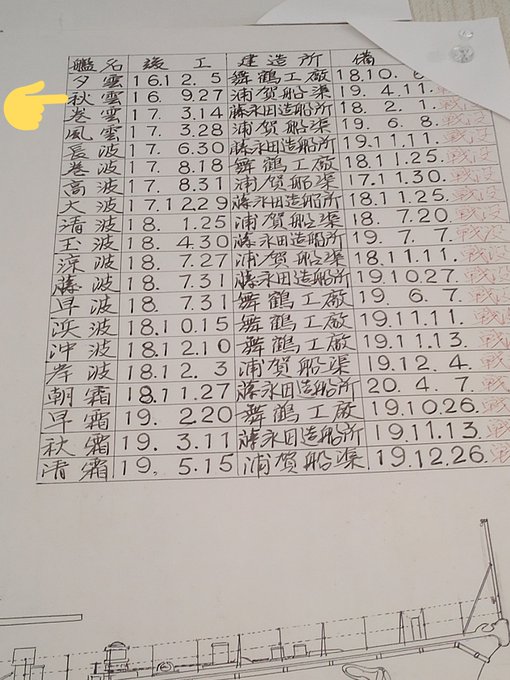 艦名 竣工 建造所 備
夕雲 16.12.5 舞鶴工廠 18.10.
秋雲 16.9.27 浦賀船渠 19.4.11. 戦没
巻雲 17.3.14 藤永田造船所 18.2.1. 戦没
風雲 17.3.28 浦賀船渠 19.6.8. 戦没
長波 17.6.30 藤永田造船所 19.11.11. 戦没
巻波 17.8.18 舞鶴工廠 18.11.25. 戦没
高波 17.8.31 浦賀船渠 17.11.30. 戦没
大波 17.12.29 藤永田造船所 18.11.25. 戦没
清波 18.1.25 浦賀船渠 18.7.20. 戦没
玉波 18.4.30 藤永田造船所 19.7.7. 戦没
涼波 18.7.27 浦賀船渠 18.11.11. 戦没
藤波 18.7.31 藤永田造船所 19.10.27. 戦没
早波 18.7.31 舞鶴工廠 19.6.7. 戦没
浜波 18.10.15 舞鶴工廠 19.11.11. 戦没
沖波 18.12.10 舞鶴工廠 19.11.13. 戦没
岸波 18.12.3 浦賀船渠 19.12.4. 戦没
朝霜 18.11.27 藤永田造船所 20.4.7. 戦
早霜 19.2.20 舞鶴工廠 19.10.26. 戦
秋霜 19.3.11 藤永田造船所 19.11.13. 戦
清霜 19.5.15 浦賀船渠 19.12.26. 戦